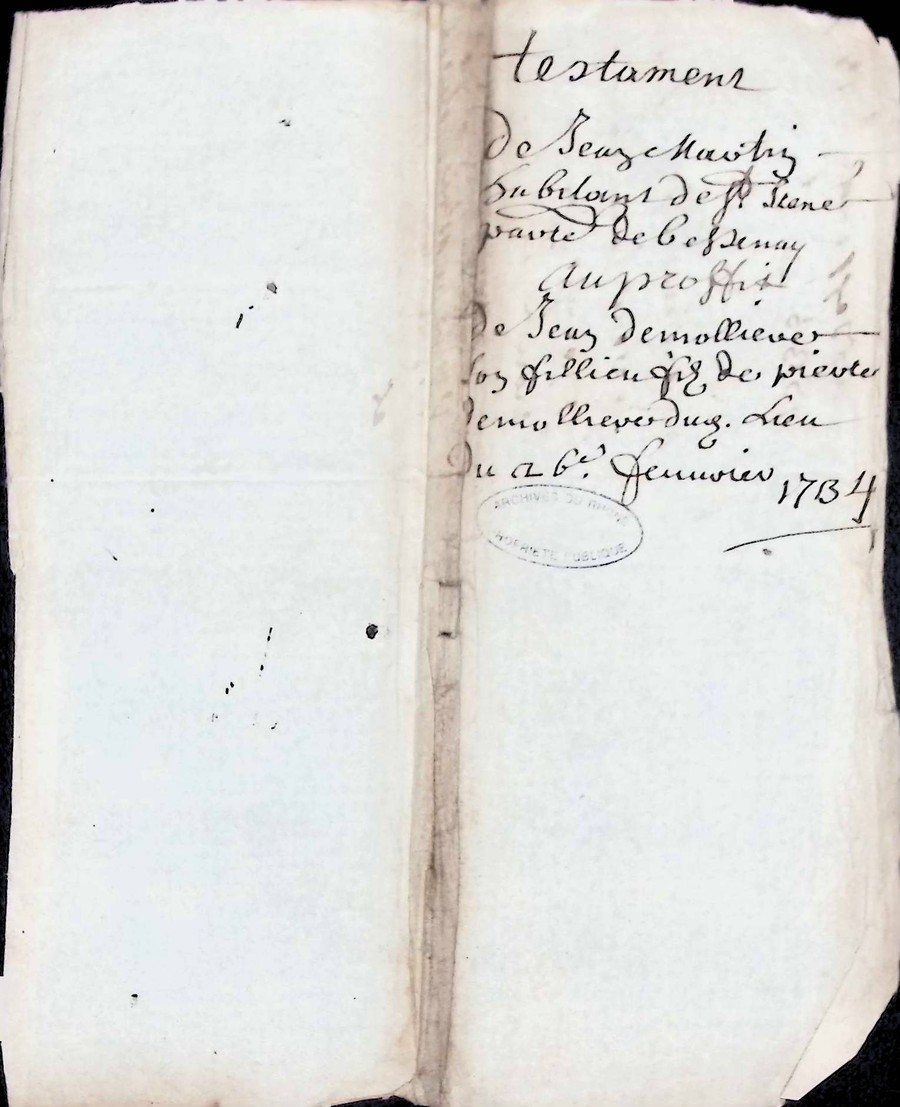 testament
de Jean Martin
habitant de st Irené
partie de bessenay
au proffit
de Jean demolliere
son fillieu filz de pierre
demolliere dud. Lieu
du 26e. feuvrier 1734
ARCHIVES DU RHONE
PROPRIETE PUBLIQUE